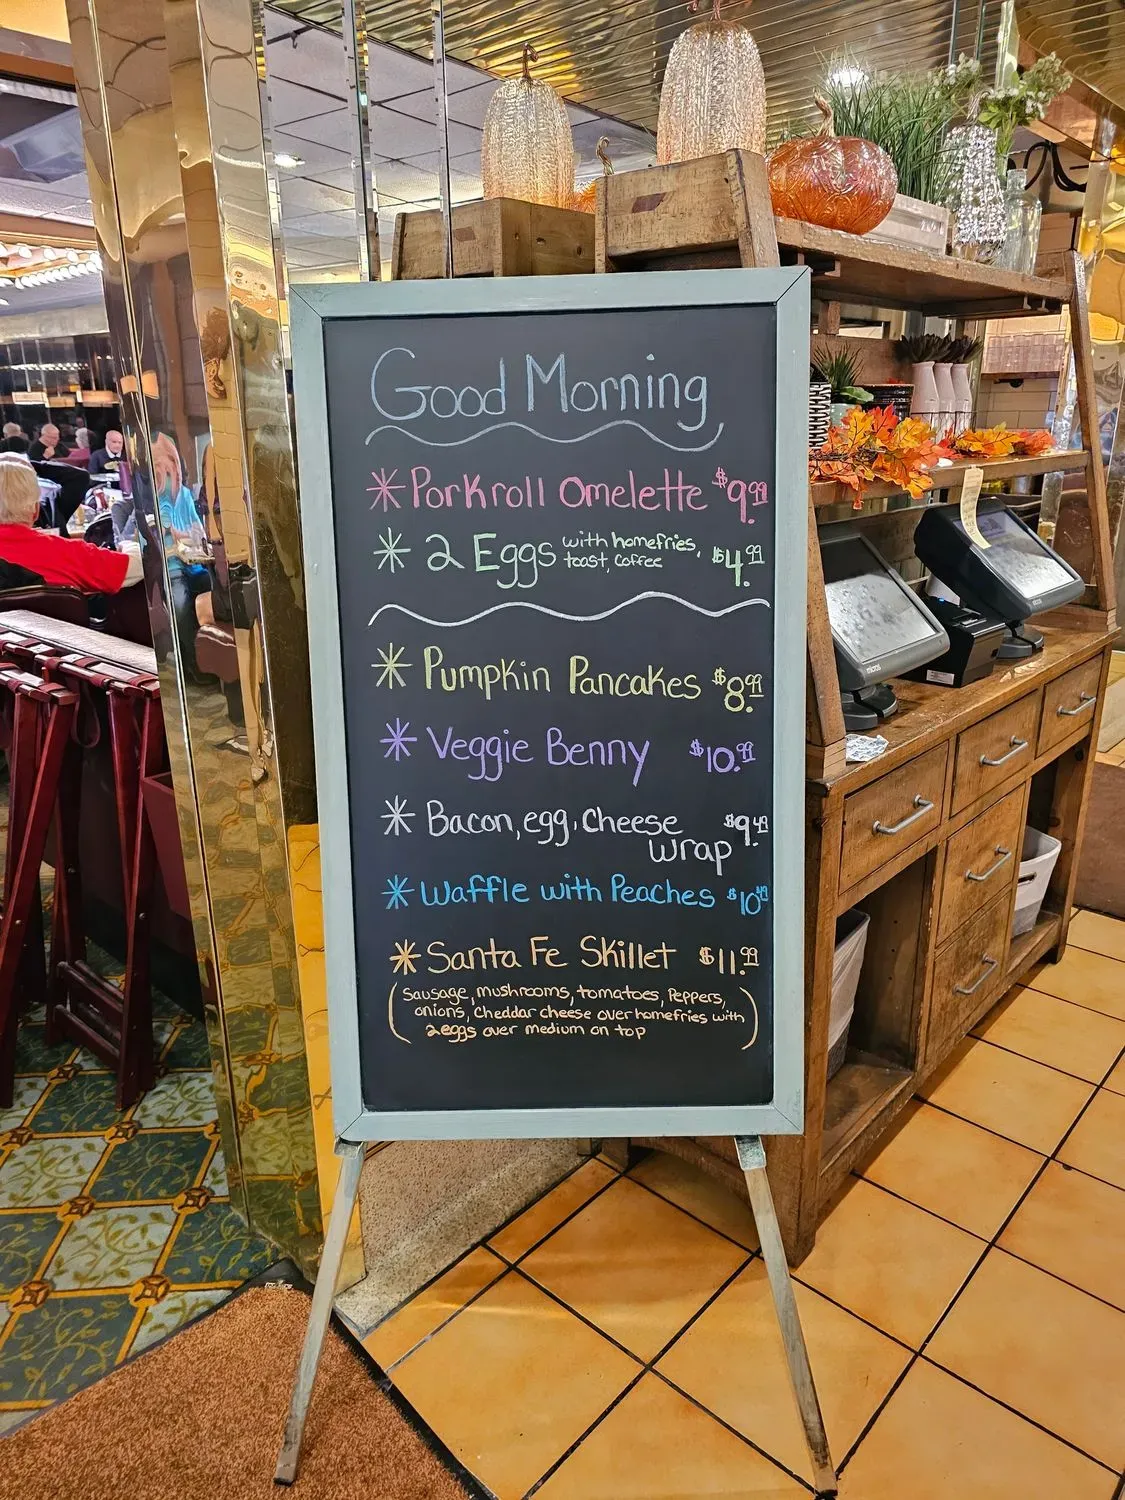 Good Morning
* Porkroll Omelette $9.99
* 2 Eggs with homefries, toast, coffee $4.99
* Pumpkin Pancakes $8.99
* Veggie Benny $10.99
* Bacon, egg, cheese $9.49
wrap
* Waffle with Peaches $10.49
* Santa Fe Skillet $11.99
(Sausage, mushrooms, tomatoes, Peppers,
onions, Cheddar cheese over homefries with
2 eggs over medium on top)
micros